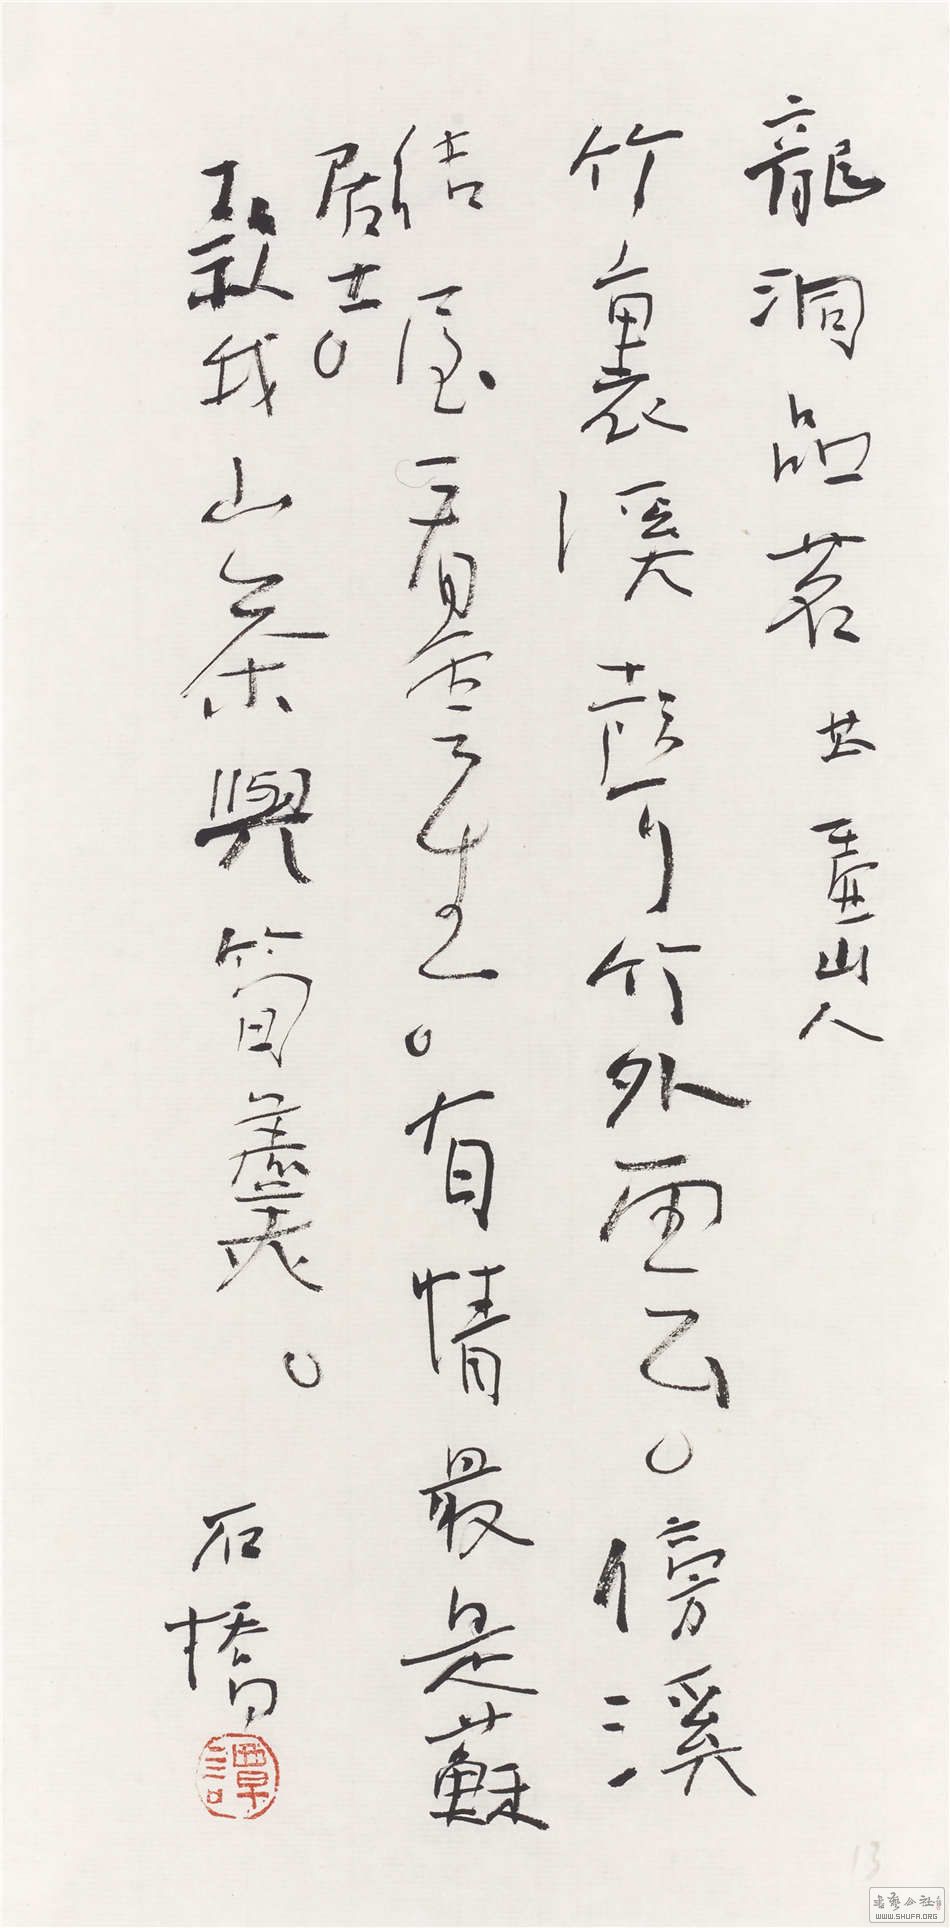 龍洞品茗 山人
竹裏溪聲竹外雲。傍溪
結屋看雲生。有情最是蘇
居士。
款我山茶與筍羹。 石橋
譚
13
书艺公社
WWW.SHUFA.ORG